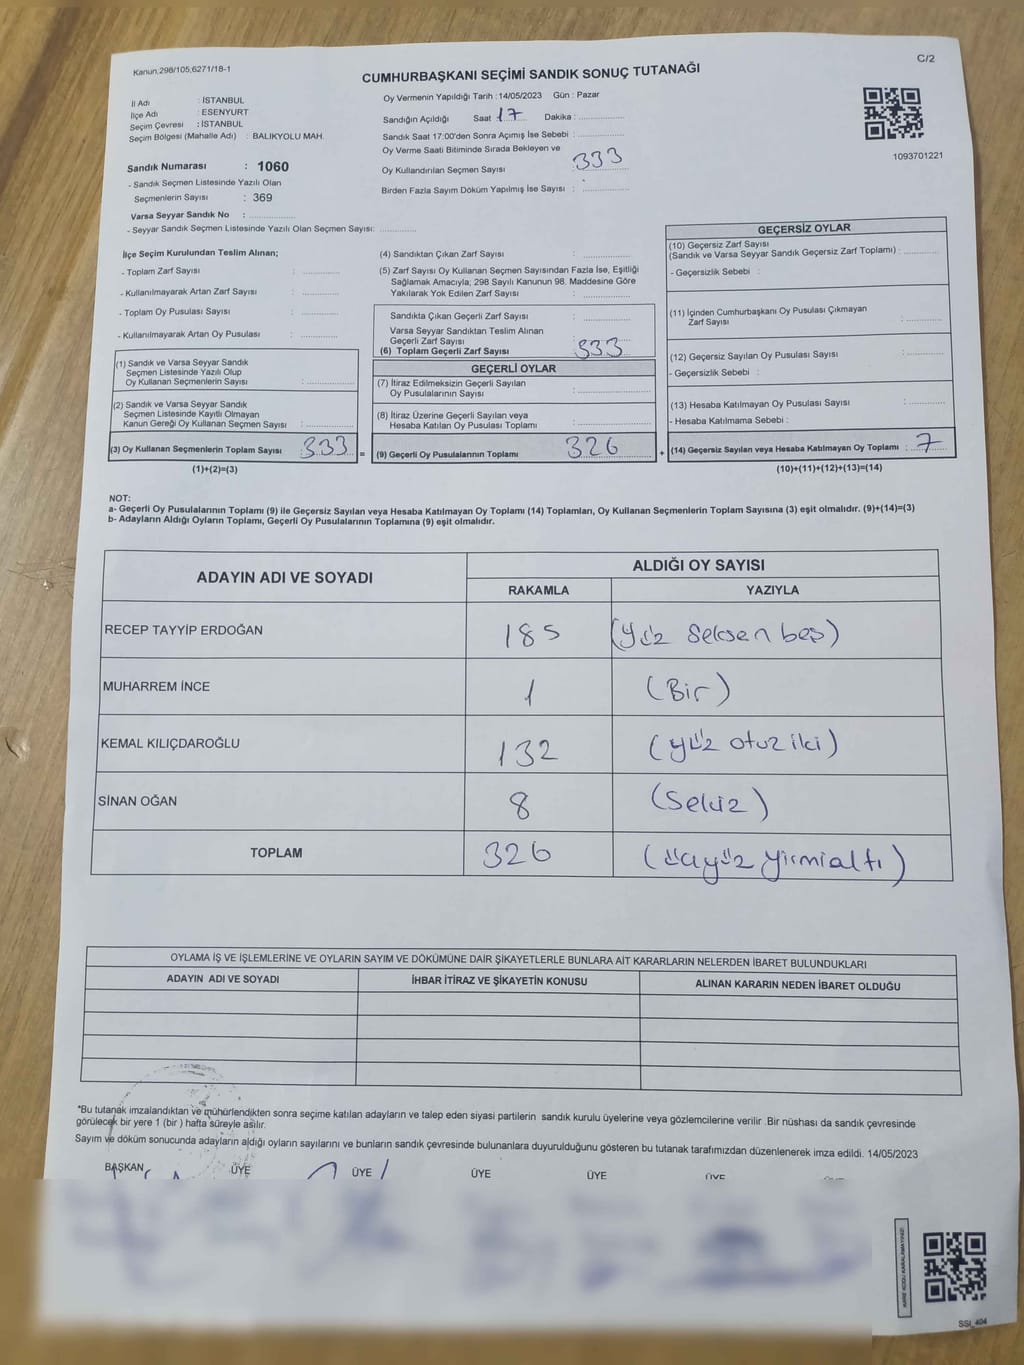 Kanun,298/105,6271/18-1
C/2
CUMHURBAŞKANI SEÇİMİ SANDIK SONUÇ TUTANAĞI
İl Adı : İSTANBUL
İlçe Adı : ESENYURT
Seçim Çevresi : İSTANBUL
Seçim Bölgesi (Mahalle Adı) : BALIKYOLU MAH.
Sandık Numarası : 1060
- Sandık Seçmen Listesinde Yazılı Olan
Seçmenlerin Sayısı : 369
Varsa Seyyar Sandık No : ..................
- Seyyar Sandık Seçmen Listesinde Yazılı Olan Seçmen Sayısı: ..............
Oy Vermenin Yapıldığı Tarih :14/05/2023 Gün : Pazar
Sandığın Açıldığı Saat 17 Dakika : ..................
Sandık Saat 17:00'den Sonra Açımış İse Sebebi : ..................
Oy Verme Saati Bitiminde Sırada Bekleyen ve
Oy Kullandırılan Seçmen Sayısı : 333
Birden Fazla Sayım Döküm Yapılmış İse Sayısı : ..................
1093701221
İlçe Seçim Kurulundan Teslim Alınan;
- Toplam Zarf Sayısı : ..............
- Kullanılmayarak Artan Zarf Sayısı : ..............
- Toplam Oy Pusulası Sayısı : ..............
- Kullanılmayarak Artan Oy Pusulası : ..............
(1) Sandık ve Varsa Seyyar Sandık
Seçmen Listesinde Yazılı Olup
Oy Kullanan Seçmenlerin Sayısı : ..................
(2) Sandık ve Varsa Seyyar Sandık
Seçmen Listesinde Kayıtlı Olmayan
Kanun Gereği Oy Kullanan Seçmen Sayısı : ..................
(3) Oy Kullanan Seçmenlerin Toplam Sayısı : 333
(1)+(2)=(3)
(4) Sandıktan Çıkan Zarf Sayısı : ..................
(5) Zarf Sayısı Oy Kullanan Seçmen Sayısından Fazla İse, Eşitliği
Sağlamak Amacıyla; 298 Sayılı Kanunun 98. Maddesine Göre
Yakılarak Yok Edilen Zarf Sayısı : ..................
Sandıkta Çıkan Geçerli Zarf Sayısı : ..................
Varsa Seyyar Sandıktan Teslim Alınan
Geçerli Zarf Sayısı : ..................
(6) Toplam Geçerli Zarf Sayısı 333
GEÇERLİ OYLAR
(7) İtiraz Edilmeksizin Geçerli Sayılan
Oy Pusulalarının Sayısı : ..................
(8) İtiraz Üzerine Geçerli Sayılan veya
Hesaba Katılan Oy Pusulası Toplamı : ..................
= (9) Geçerli Oy Pusulalarının Toplamı : 326
GEÇERSİZ OYLAR
(10) Geçersiz Zarf Sayısı
(Sandık ve Varsa Seyyar Sandık Geçersiz Zarf Toplamı) : ..............
- Geçersizlik Sebebi :
(11) İçinden Cumhurbaşkanı Oy Pusulası Çıkmayan
Zarf Sayısı : ..............
(12) Geçersiz Sayılan Oy Pusulası Sayısı : ..............
- Geçersizlik Sebebi :
(13) Hesaba Katılmayan Oy Pusulası Sayısı : ..............
- Hesaba Katılmama Sebebi :
+ (14) Geçersiz Sayılan veya Hesaba Katılmayan Oy Toplamı : 7
(10)+(11)+(12)+(13)=(14)
NOT:
a- Geçerli Oy Pusulalarının Toplamı (9) ile Geçersiz Sayılan veya Hesaba Katılmayan Oy Toplamı (14) Toplamları, Oy Kullanan Seçmenlerin Toplam Sayısına (3) eşit olmalıdır. (9)+(14)=(3)
b- Adayların Aldığı Oyların Toplamı, Geçerli Oy Pusulalarının Toplamına (9) eşit olmalıdır.
ADAYIN ADI VE SOYADI ALDIĞI OY SAYISI
RAKAMLA YAZIYLA
RECEP TAYYİP ERDOĞAN 185 (yüz seksen beş)
MUHARREM İNCE 1 (Bir)
KEMAL KILIÇDAROĞLU 132 (yüz otuz iki)
SİNAN OĞAN 8 (Sekiz)
TOPLAM 326 (üçyüz yirmialtı)
OYLAMA İŞ VE İŞLEMLERİNE VE OYLARIN SAYIM VE DÖKÜMÜNE DAİR ŞİKAYETLERLE BUNLARA AİT KARARLARIN NELERDEN İBARET BULUNDUKLARI
ADAYIN ADI VE SOYADI İHBAR İTİRAZ VE ŞİKAYETİN KONUSU ALINAN KARARIN NEDEN İBARET OLDUĞU
*Bu tutanak imzalandıktan ve mühürlendikten sonra seçime katılan adayların ve talep eden siyasi partilerin sandık kurulu üyelerine veya gözlemcilerine verilir .Bir nüshası da sandık çevresinde
görülecek bir yere 1 (bir ) hafta süreyle asılır.
Sayım ve döküm sonucunda adayların aldığı oyların sayılarını ve bunların sandık çevresinde bulunanlara duyurulduğunu gösteren bu tutanak tarafımızdan düzenlenerek imza edildi. 14/05/2023
BAŞKAN ÜYE ÜYE ÜYE ÜYE ÜYE
KARE KODU KARALAMAYINIZ!
SSI_404